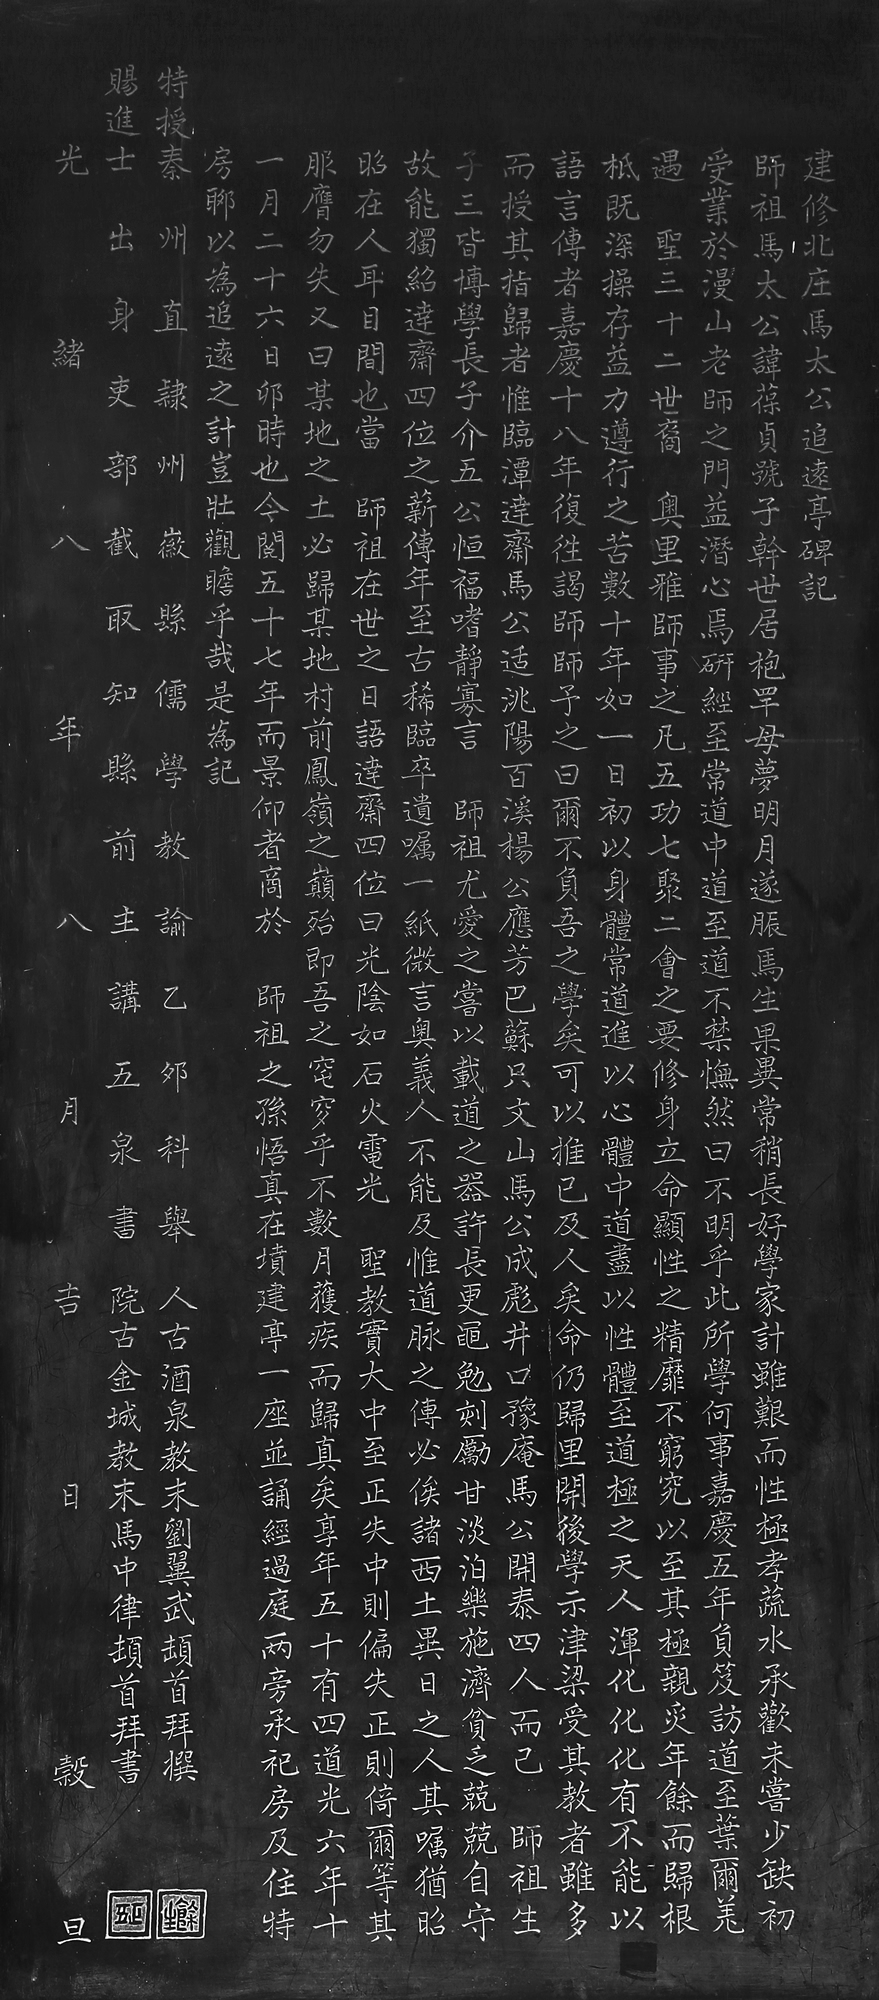 建修北庄馬太公追遠亭碑記
師祖馬太公諱葆貞號子幹世居枹罕母夢明月遂脤焉生果異常稍長好學家計雖艱而性極孝蔬水承歡未嘗少缺初
受業於漫山老師之門益潛心焉硏經至常道中道至道不禁憮然曰不明乎此所學何事嘉慶五年負笈訪道至葉爾羌
遇　聖三十二世裔　奧里雅師事之凡五功七聚二會之要修身立命顯性之精靡不窮究以至其極親炙年餘而歸根
柢既深操存益力遵行之苦數十年如一日初以身體常道進以心體中道盡以性體至道極之天人渾化化化有不能以
語言傳者嘉慶十八年復徃謁師師予之曰爾不負吾之學矣可以推已及人矣命仍歸里開後學示津梁受其教者雖多
而授其指歸者惟臨潭達齋馬公适洮陽百溪楊公應芳巴蘇只文山馬公成彪井口豫庵馬公開泰四人而已　師祖生
子三皆博學長子介五公恒福嗜靜寡言　師祖尤愛之嘗以載道之器許長更黽勉刻勵甘淡泊樂施濟貧乏兢兢自守
故能獨紹達齋四位之薪傳年至古稀臨卒遺囑一紙微言奧義人不能及惟道脉之傳必俟諸西土異日之人其囑猶昭
昭在人耳目間也當　師祖在世之日語達齋四位曰光陰如石火電光　聖教實大中至正失中則偏失正則倚爾等其
服膺勿失又曰某地之土必歸某地村前鳳嶺之巔殆即吾之窀穸乎不數月獲疾而歸真矣享年五十有四道光六年十
一月二十六日卯時也今閱五十七年而景仰者商於　師祖之孫悟真在墳建亭一座並誦經過庭两旁承祀房及住特
房聊以為追遠之計豈壯觀瞻乎哉是為記
特授秦州直隷州徽縣儒學教諭乙夘科舉人古酒泉教末劉翼武頓首拜撰
賜進士出身吏部截取知縣前主講五泉書院古金城教末馬中律頓首拜書
光緒八年八月吉日穀旦